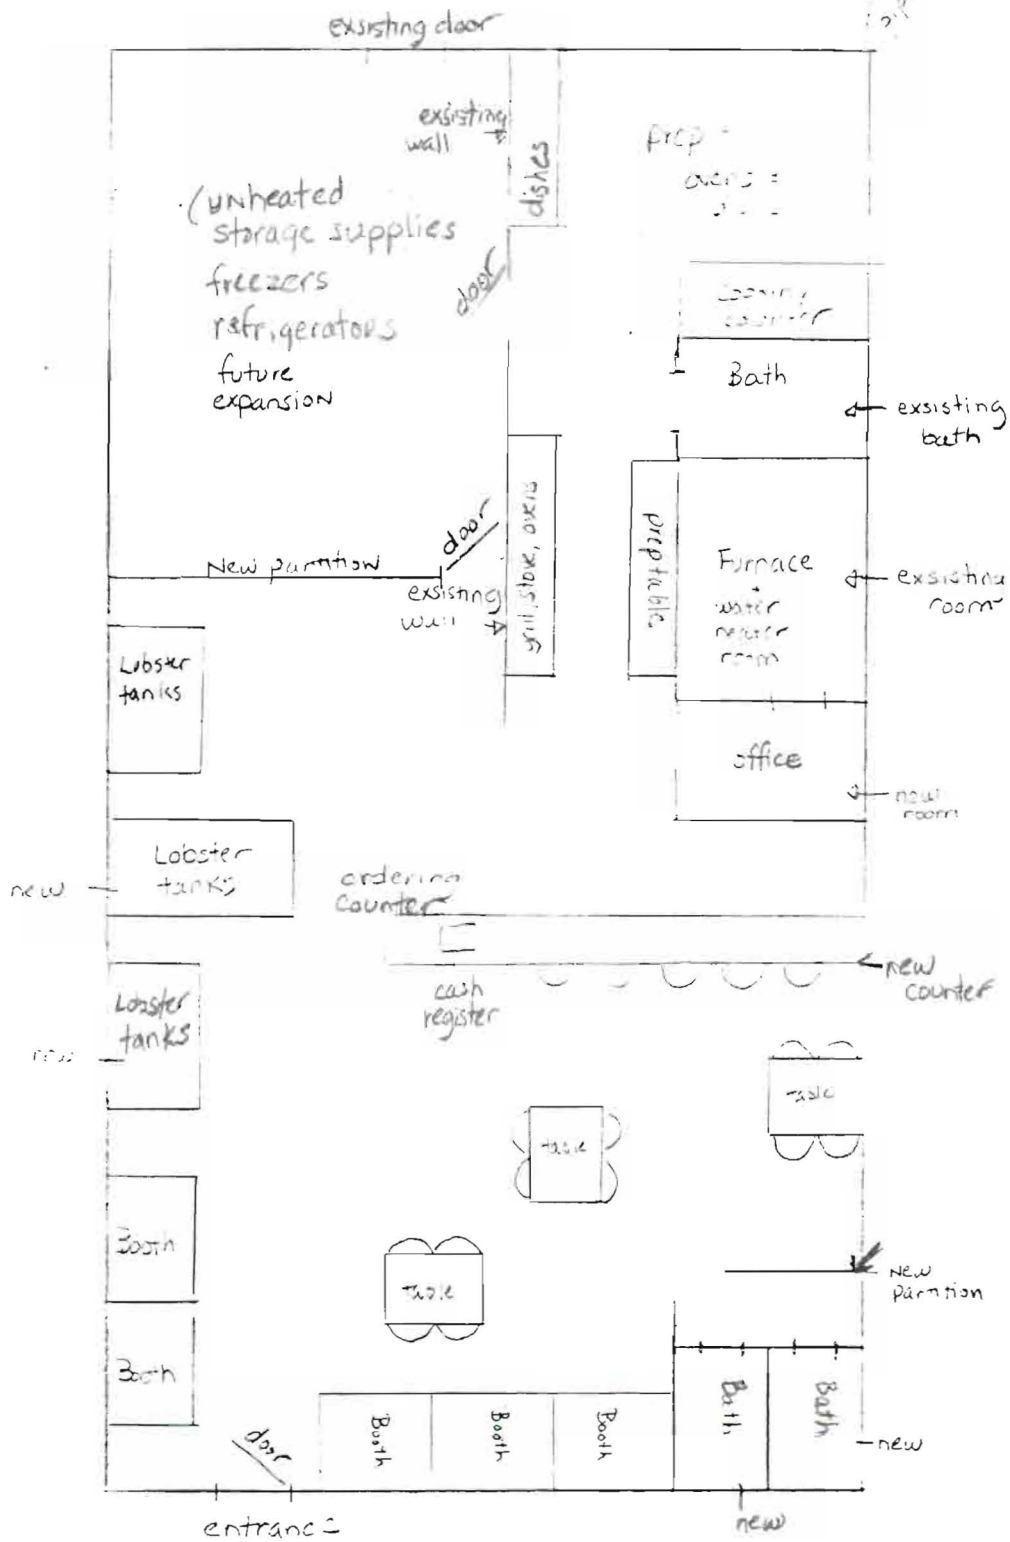 exsisting door
exsisting
wall
dishes
prep
ovens
(unheated
storage supplies
freezers
refrigerators
future
expansion
door
cooking
counter
Bath
exsisting
bath
door
grill, stove, ovens
preptable
New partition
exsisting
wall
Furnace
+
water
heater
room
exsisting
room
Lobster
tanks
office
new
room
Lobster
tanks
new
ordering
counter
new
counter
cash
register
Lobster
tanks
new
table
table
Booth
table
New
partition
Booth
door
Booth
Booth
Booth
Bath
Bath
new
entrance
new